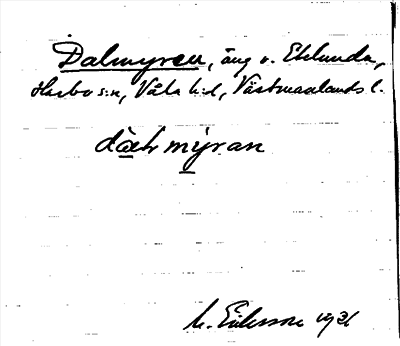 Dalmyren, äng v. Eklunda,
Harbo s:n, Våla h:d, Västmanlands l.
myran
M. Eriksson 1931